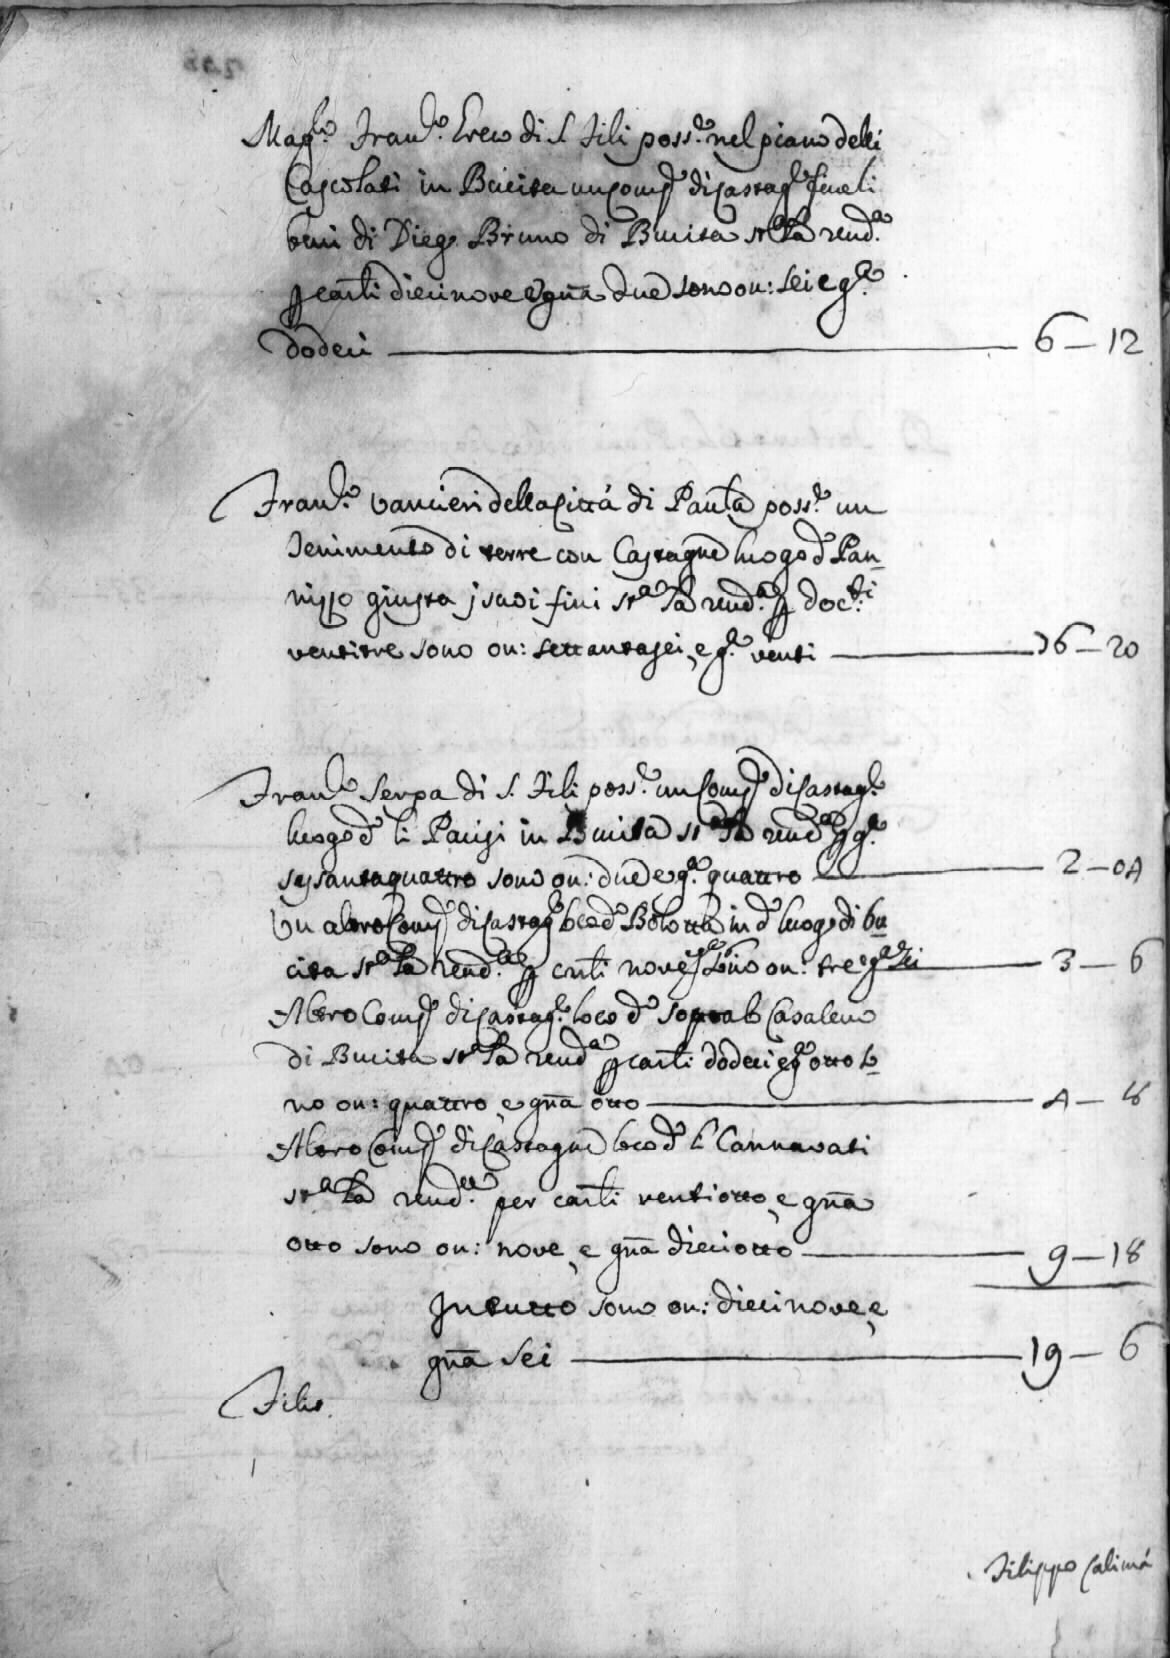 Mag.co Fran.co Creco di S. Fili poss.e nel piano delli
Cascolati in Bucita un Com.do di Castag.e fine li
beni di Diego Bruno di Bucita st.a Pa rend.a
p carli diecinove e gna due sono on: sei e g.a
dodeci — 6 — 12
Fran.co Vancieri della Città di Paula poss.e un
Tenimento di terre con Castagne luogo d.o Pan-
nizzo giusta j suoi fini st.a Pa rend.a p doc.ti
ventitre sono on: settantasei, e g.a venti — 76 — 20
Fran.co Serpa di S. Fili poss.e un Com.do di Castag.e
luogo d.o li Parisi in Bucita st.a Pa rend.a p g.a
sessantaquattro sono on: due e g.a quattro — 2 — 04
Un altro Com.do di Castag.e loco d.o Bolotta in d.o luogo di Bu-
cita st.a Pa rend.a p carli nove, e g.a sono on: tre e g.a sei — 3 — 6
Altro Com.do di Castag.e loco d.o sopra lo Casaleno
di Bucita st.a Pa rend.a p carli dodeci e g.a otto so-
no on: quattro, e gna otto — 4 — 8
Altro Com.do di Castagne loco d.o li Cannavati
st.a Pa rend.e per carli ventiotto, e gna
otto sono on: nove, e gna dieciotto — 9 — 18
In tutto sono on: diecinove, e
gna sei — 19 — 6
Filip.
Filippo Calimà